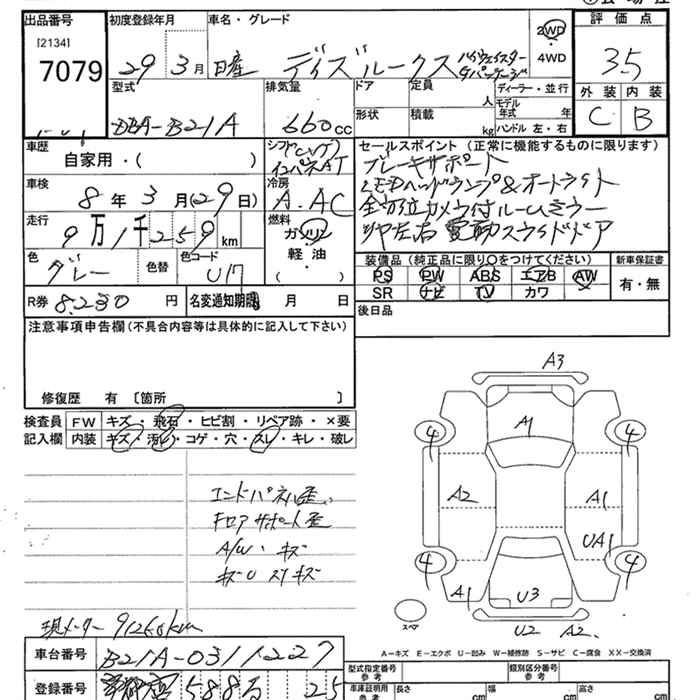 出品番号 初度登録年月 車名・グレード 評価点
[2134]
7079 29年3月 日産 デイズルークス ハイウェイスター Gパッケージ 2WD 4WD 3.5
型式 排気量 ドア 定員 人 ディーラー・並行 外装 内装
DBA-B21A 660cc 形状 積載 kg モデル年式 年 ハンドル 左・右 C B
車歴 シフト セールスポイント (正常に機能するものに限ります)
自家用・( ) インパネAT ブレーキサポート
車検 冷房 LEDヘッドランプ&オートライト
8年3月(29日) A.AC 全方位カメラ付ルームミラー
走行 燃料
9万1千259km ガソリン 両左右電動スライドドア
色 色替 色コード 軽油 装備品 (純正品に限り○をつけてください) 新車保証書
グレー ( ) PS PW ABS エアB AW 有・無
R券 8,230円 名変通知期限 月 日 SR ナビ TV カワ
注意事項申告欄(不具合内容等は具体的に記入して下さい) 後日品
修復歴 有 〔箇所 〕
検査員 FW キズ・飛石・ヒビ割・リペア跡・×要
記入欄 内装 キズ・汚れ・コゲ・穴・スレ・キレ・破レ
A3
4 A1 4
エンドパネル歪
A2 A1
フロアサポート歪
UA1
A/W・キズ
4 4
キズU スリキズ
A1 U3
スペア
U2 A2
現メーター 91260km
A-キズ E-エクボ U-凹み W-補修跡 S-サビ C-腐食 XX-交換済
車台番号 B21A-0311227
型式指定番号 参考 類別区分番号 参考
登録番号 588 25
車庫証明用 参考 長さ cm 幅 cm 高さ cm